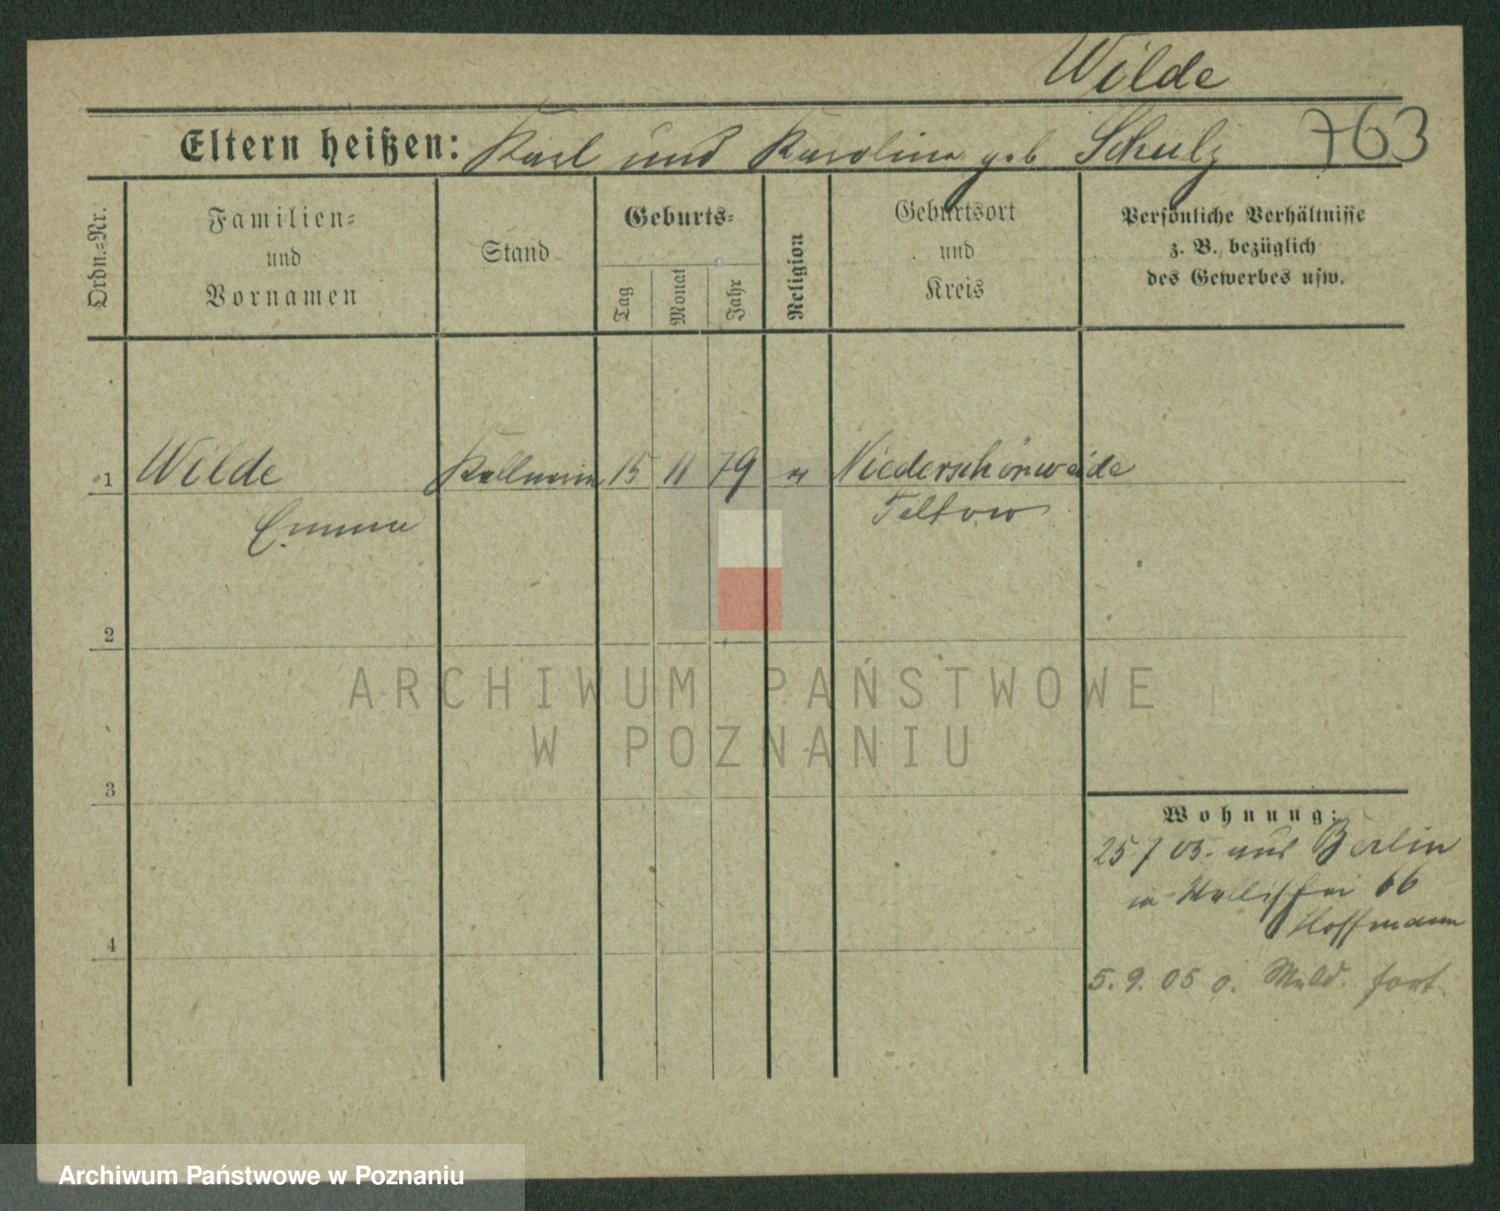 Wilde
Eltern heißen: Karl und Karoline geb. Schulz 763
Ordn.=Nr.
Familien=
und
Vornamen
Stand
Geburts=
Tag
Monat
Jahr
Religion
Geburtsort
und
Kreis
Persönliche Verhältnisse
z. B. bezüglich
des Gewerbes usw.
1 Wilde Kellnerin 15 11 79 Niederschönweide
Emma Teltow
2
3
4
Wohnung:
25.7 05. aus Berlin
in 66
Hoffmann
5. 9. 05 o. Meld. fort
ARCHIWUM PAŃSTWOWE
W POZNANIU
Archiwum Państwowe w Poznaniu